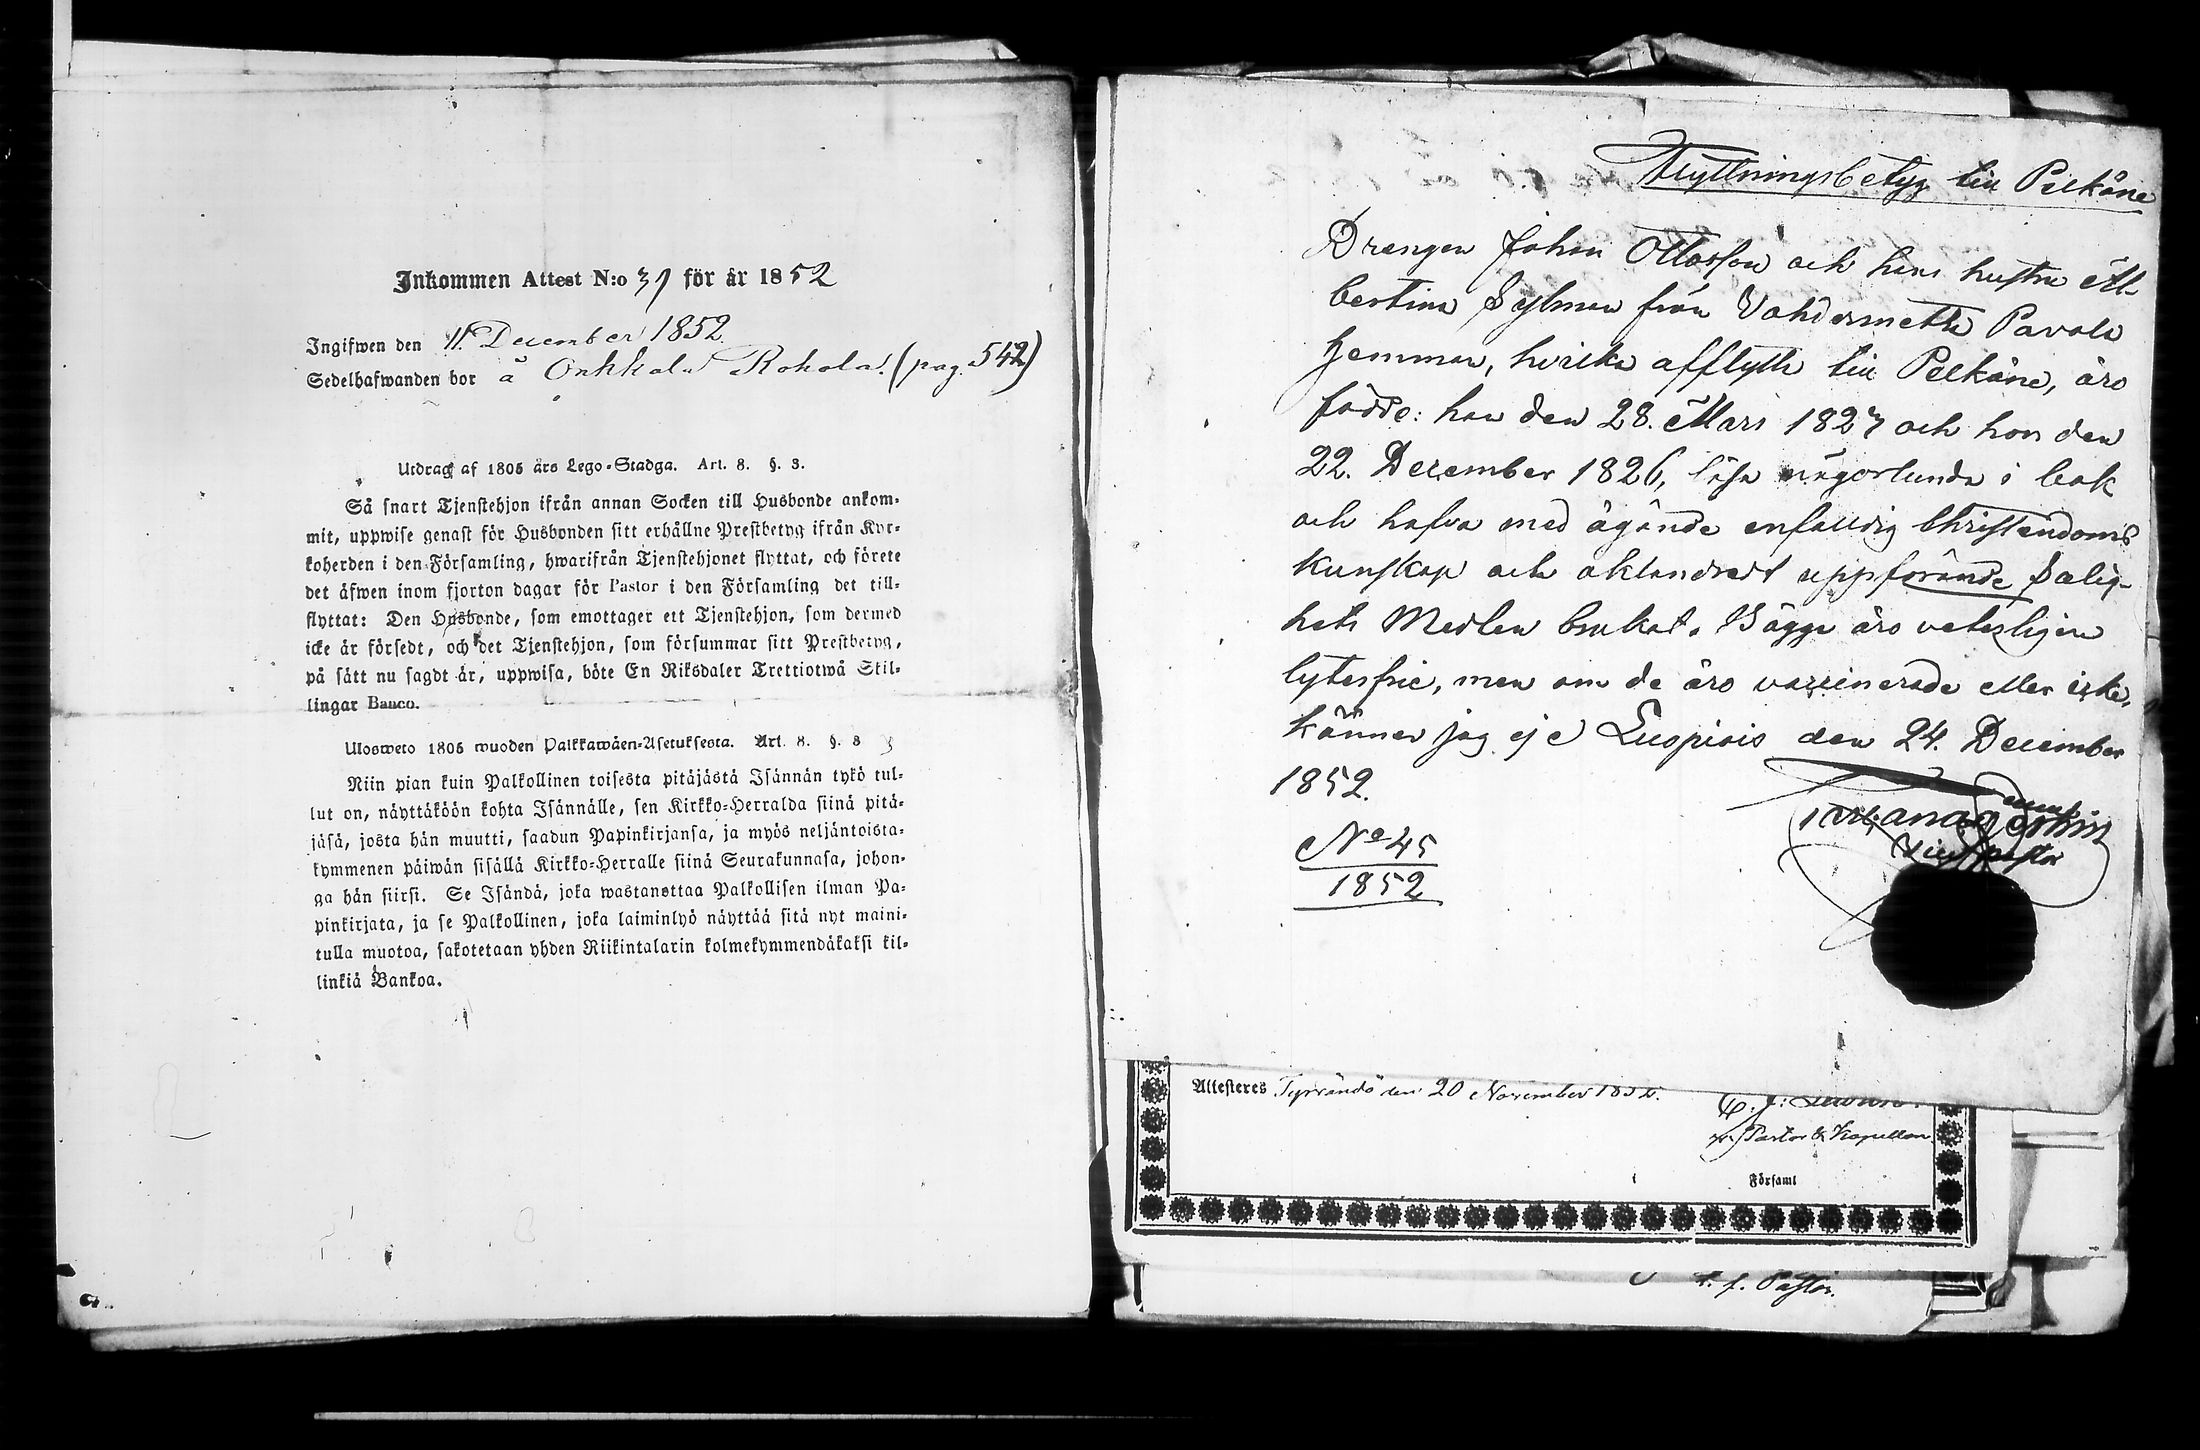 Inkommen Attest N:o 31 för år 1852
Ingifwen den 11. December 1852.
Sedelhafwanden bor å Onkkala Rohola. (pag. 542)
Utdrag af 1805 års Lego-Stadga. Art. 8. §. 3.
Så snart Tjenstehjon ifrån annan Socken till Husbonde ankom-
mit, uppwise genast för Husbonden sitt erhållne Prestbetyg ifrån Kyr-
koherden i den Församling, hwarifrån Tjenstehjonet flyttat, och förete
det äfwen inom fjorton dagar för Pastor i den Församling det till-
flyttat: Den Husbonde, som emottager ett Tjenstehjon, som dermed
icke är försedt, och det Tjenstehjon, som försummar sitt Prestbetyg,
på sätt nu sagdt är, uppwisa, böte En Riksdaler Trettiotwå Skil-
lingar Banco.
Ulosweto 1805 wuoden Palkkawäen-Asetuksesta. Art. 8. §. 3
Niin pian kuin Palkollinen toisesta pitäjästä Isännän tykö tul-
lut on, näyttäköön kohta Isännälle, sen Kirkko-Herralda siinä pitä-
jäsä, josta hän muutti, saadun Papinkirjansa, ja myös neljäntoista-
kymmenen päiwän sisällä Kirkko-Herralle siinä Seurakunnasa, johon-
ga hän siirsi. Se Isändä, joka wastanottaa Palkollisen ilman Pa-
pinkirjata, ja se Palkollinen, joka laiminlyö näyttää sitä nyt maini-
tulla muotoa, sakotetaan yhden Riikintalarin kolmekymmendäkaksi kil-
linkiä Bankoa.
Flyttningsbetyg till Pelkäne
Drengen Johan Ottosson och hans hustru Al-
bertina Sylman från Vahdermetts Pavola
hemman, hvilka afflytta till Pelkäne, äro
födde: han den 28. Mars 1827 och hon den
22. December 1826, läsa någorlunda i bok
och hafva med ägande enfaldig Christendoms
kunskap och oklandradt uppförande Salig-
hets Medlen brukat. Bägge äro veterligen
lytesfrie, men om de äro vaccinerade eller icke,
känner jag ej. Luopiois den 24. December
1852.
No 45
1852
Vice pastor
Attesteras Tyrvändö den 20 November 1852.
v. Pastor & Kapellan
Församl
v. f. Pastor.